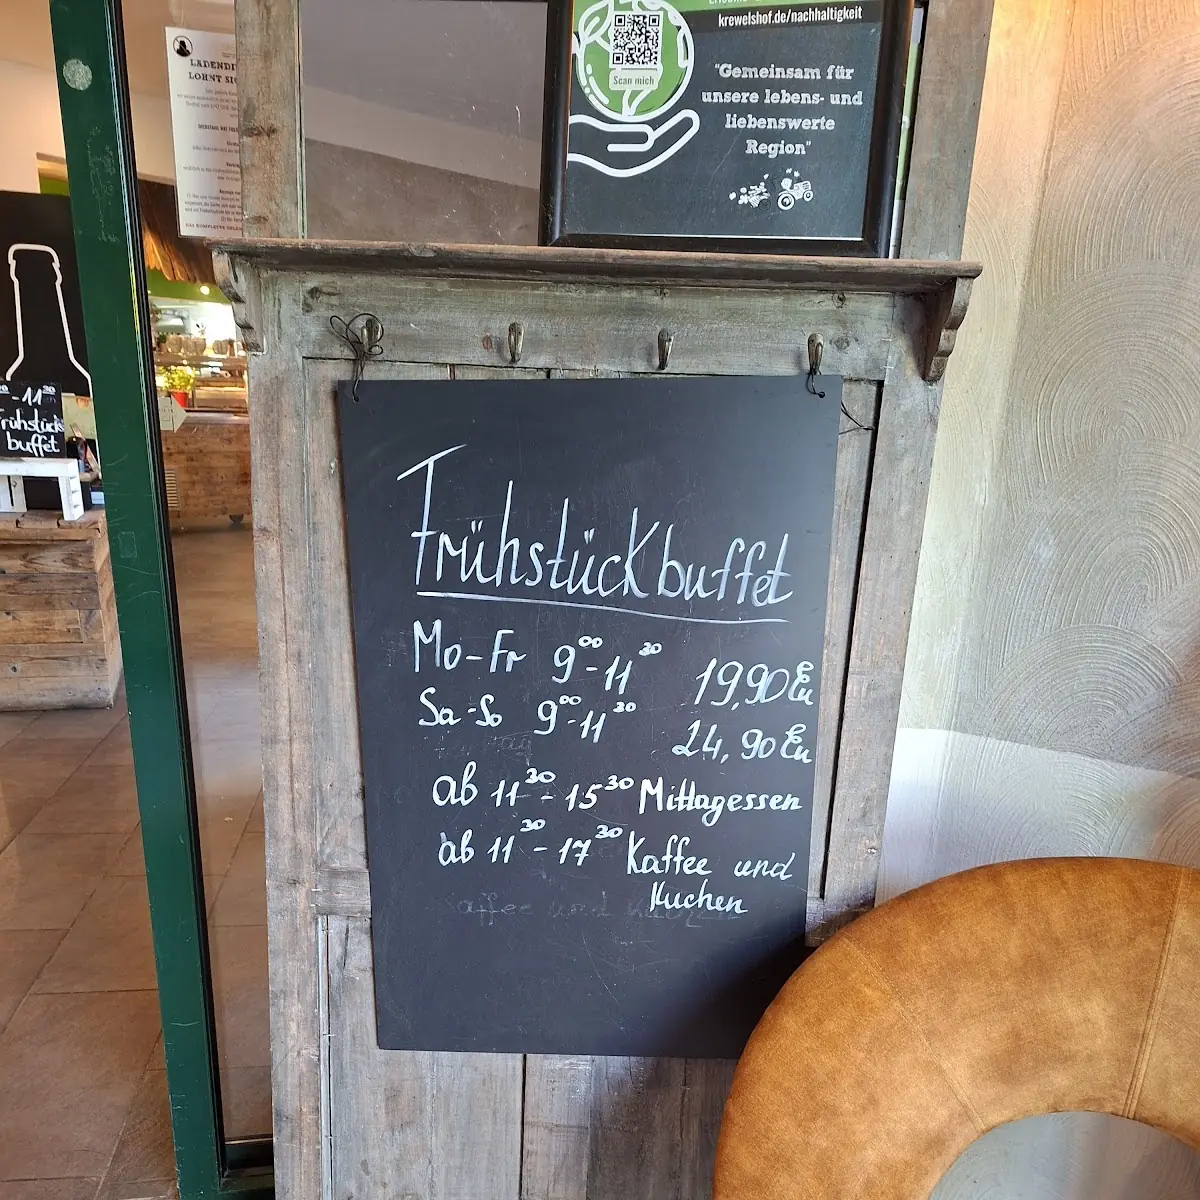 krewelshof.de/nachhaltigkeit
Scan mich
"Gemeinsam für
unsere lebens- und
liebenswerte
Region"
LOHNT
-11³⁰
Frühstücks
buffet
Frühstückbuffet
Mo-Fr 9⁰⁰-11³⁰ 19,90 Eu
Sa-So 9⁰⁰-11³⁰ 24,90 Eu
ab 11³⁰-15³⁰ Mittagessen
ab 11³⁰-17³⁰ Kaffee und
Kuchen